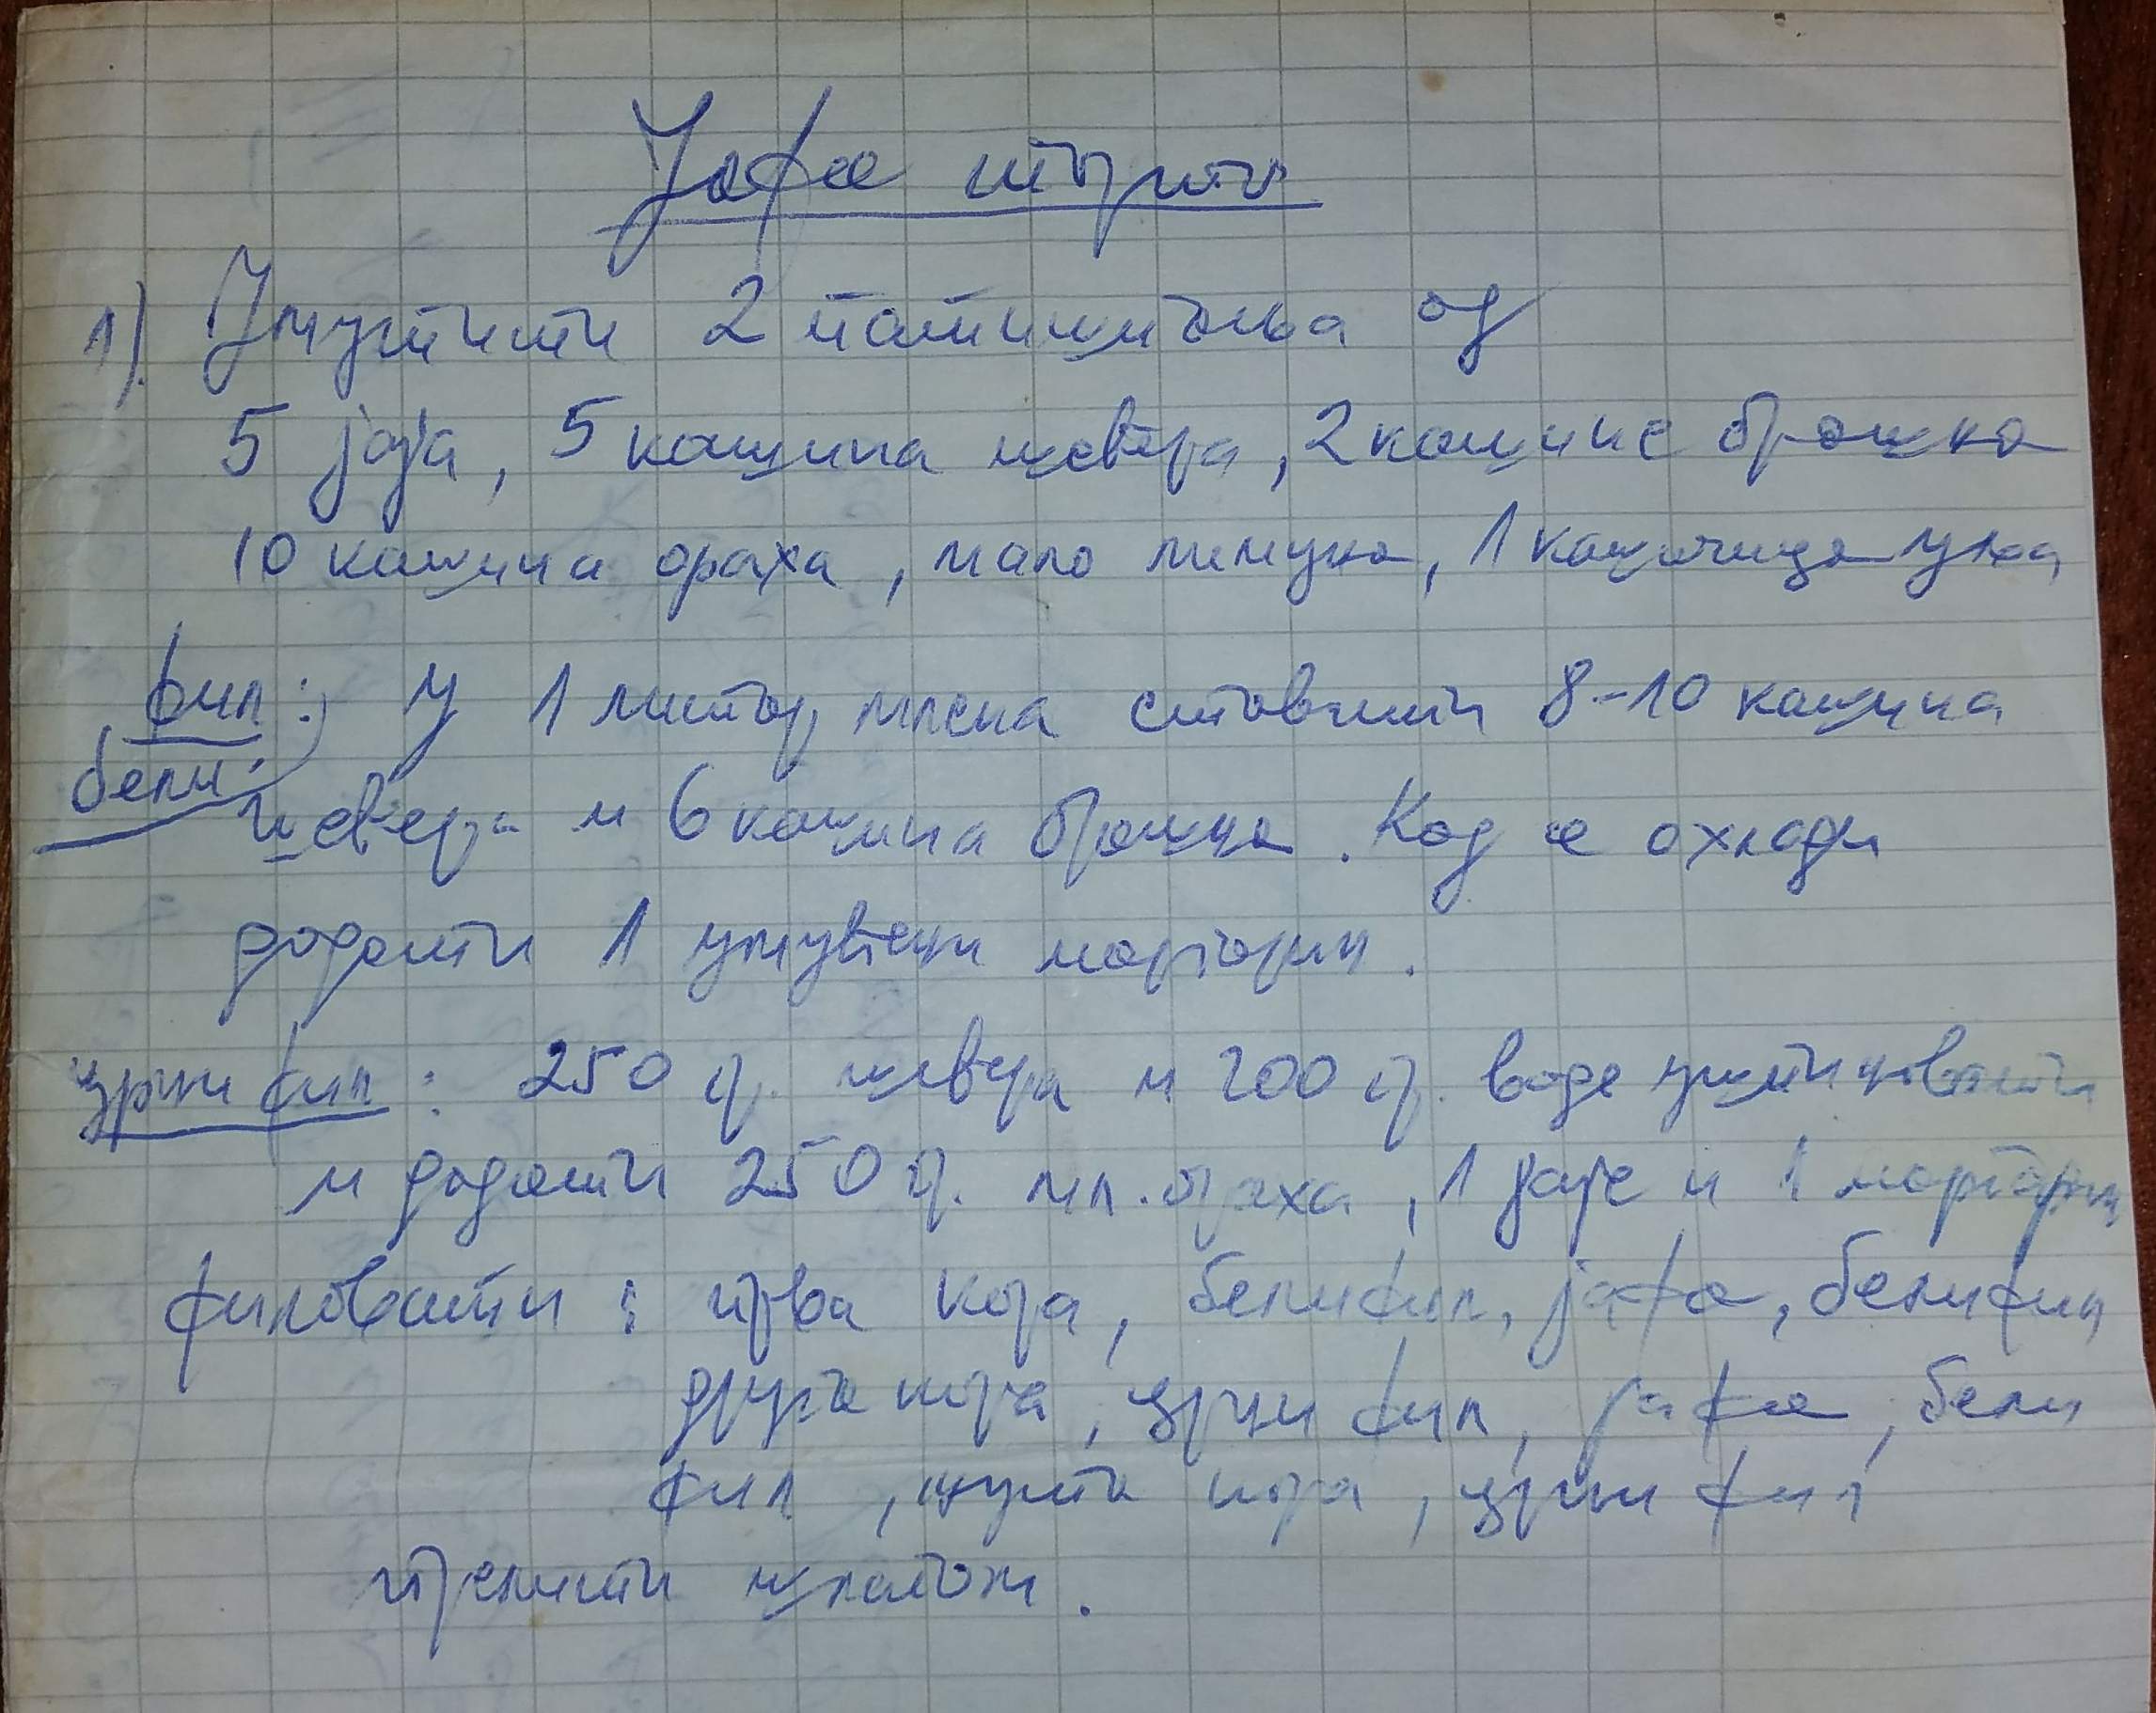 Јафа торта
1). Умутити 2 патишпања од
5 јаја, 5 кашика шећера, 2 кашике брашна
10 кашика ораха, мало лимуна, 1 кашичица уља
фил: У 1 литар млека ставити 8-10 кашика
бели:
шећера и 6 кашика брашна. Кад се охлади
додати 1 умућени маргарин.
црни фил: 250 гр. шећера и 200 гр. воде ушпиновати
и додати 250 гр. мл. ораха, 1 јаје и 1 маргарин
филовати: прва кора, бели фил, јафа, бели фил
друга кора, црни фил, јафа, бели
фил, жута кора, црни фил
прелити шлагом.